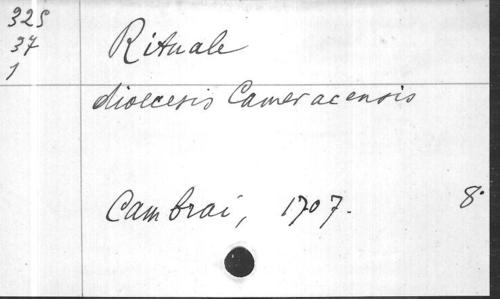 325
37
1
Rituale
dioecesis Cameracensis
Cambrai, 1707. 8°